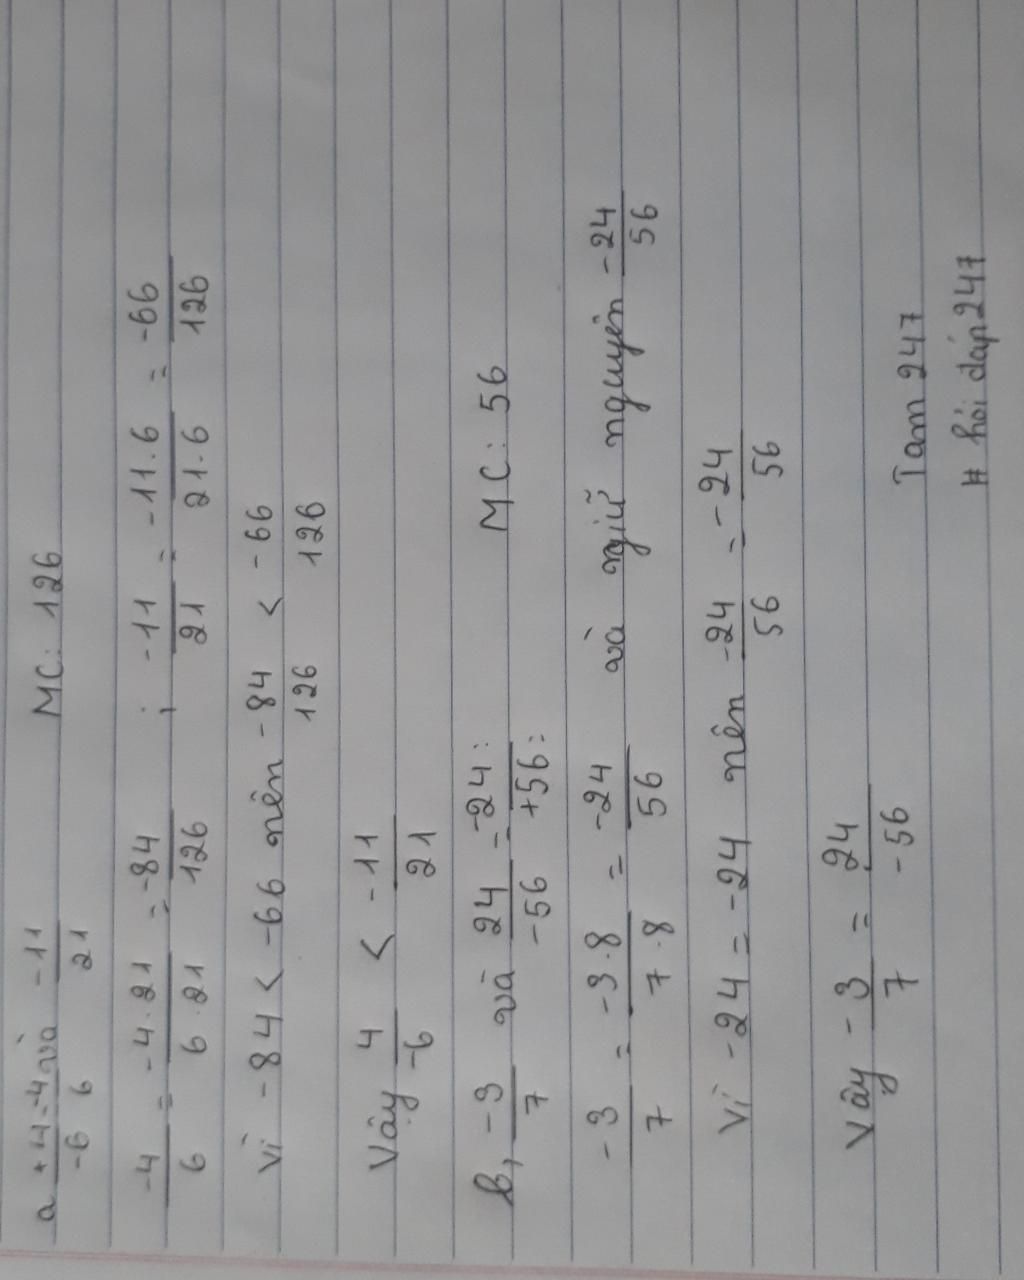 a, +4/-6 = -4/6 và -11/21 MC: 126
-4/6 = -4.21/6.21 = -84/126 ; -11/21 = -11.6/21.6 = -66/126
Vì -84 < -66 nên -84/126 < -66/126
Vậy 4/-6 < -11/21
b, -3/7 và 24/-56 = -24:/+56: MC: 56
-3/7 = -3.8/7.8 = -24/56 và ngiữ nguyên -24/56
Vì -24 = -24 nên -24/56 = -24/56
Vây -3/7 = 24/-56
Tam 247
# hỏi đáp 247